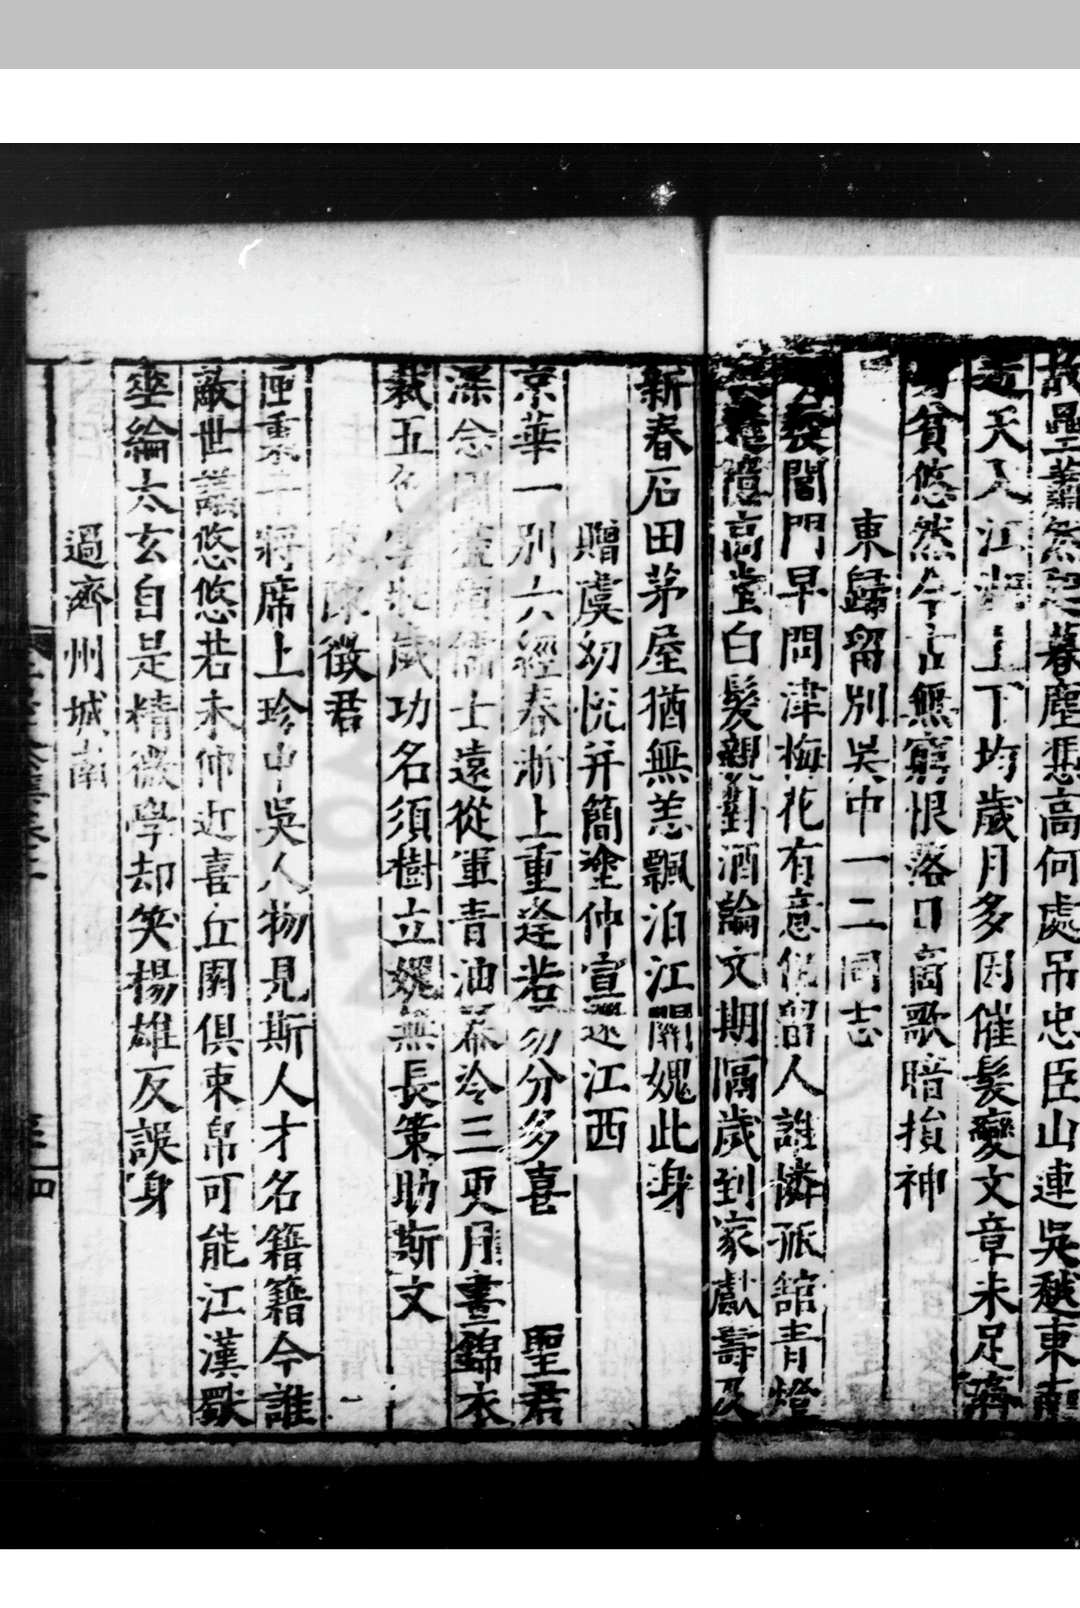 故壘蕭然起暮塵憑高何處吊忠臣山連吳越東南
近天入江湖上下均歲月多因催髮變文章未足濟
貧悠然今古無窮恨落日高歌暗損神
東歸留別吳中一二同志
裝閶門早問津梅花有意似留人誰憐孤館青燈
遠憶高堂白髮親對酒論文期隔歲到家獻壽及
新春石田茅屋猶無恙飄泊江關媿此身
贈虞幼悅并簡塗仲宣還江西
京華一別六經春淛上重逢若勿分多喜 聖君
深念閭須儒士遠從軍青油幕冷三更月晝錦衣
裁五色歲功名須樹立媿無長策助斯文
陳徵君
匣重將席上珍中吳人物見斯人才名籍籍今誰
敵世悠悠若未伸近喜丘園俱束帛可能江漢獸
垂綸太玄自是精微學却笑楊雄反誤身
過濟州城南